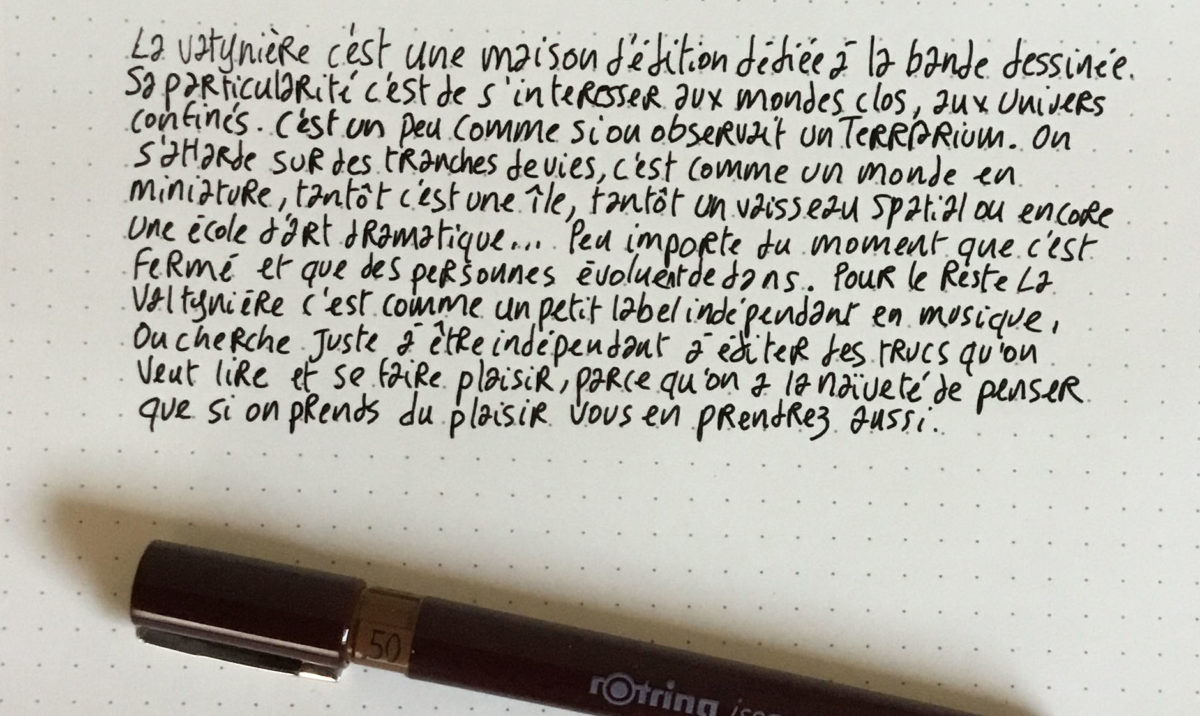 La vatynière c'est une maison d'édition dédiée à la bande dessinée.
Sa particularité c'est de s'interesser aux mondes clos, aux univers
confinés. C'est un peu comme si on observait un TERRARIUM. On
s'attarde sur des tranches de vies, c'est comme un monde en
miniature, tantôt c'est une île, tantôt un vaisseau spatial ou encore
une école d'art dramatique... Peu importe du moment que c'est
fermé et que des personnes évoluent dedans. Pour le reste La
Valtynière c'est comme un petit label indépendant en musique,
On cherche juste à être indépendant à éditer des trucs qu'on
veut lire et se faire plaisir, parce qu'on a la naïveté de penser
que si on prends du plaisir vous en prendrez aussi.
.50
rotring